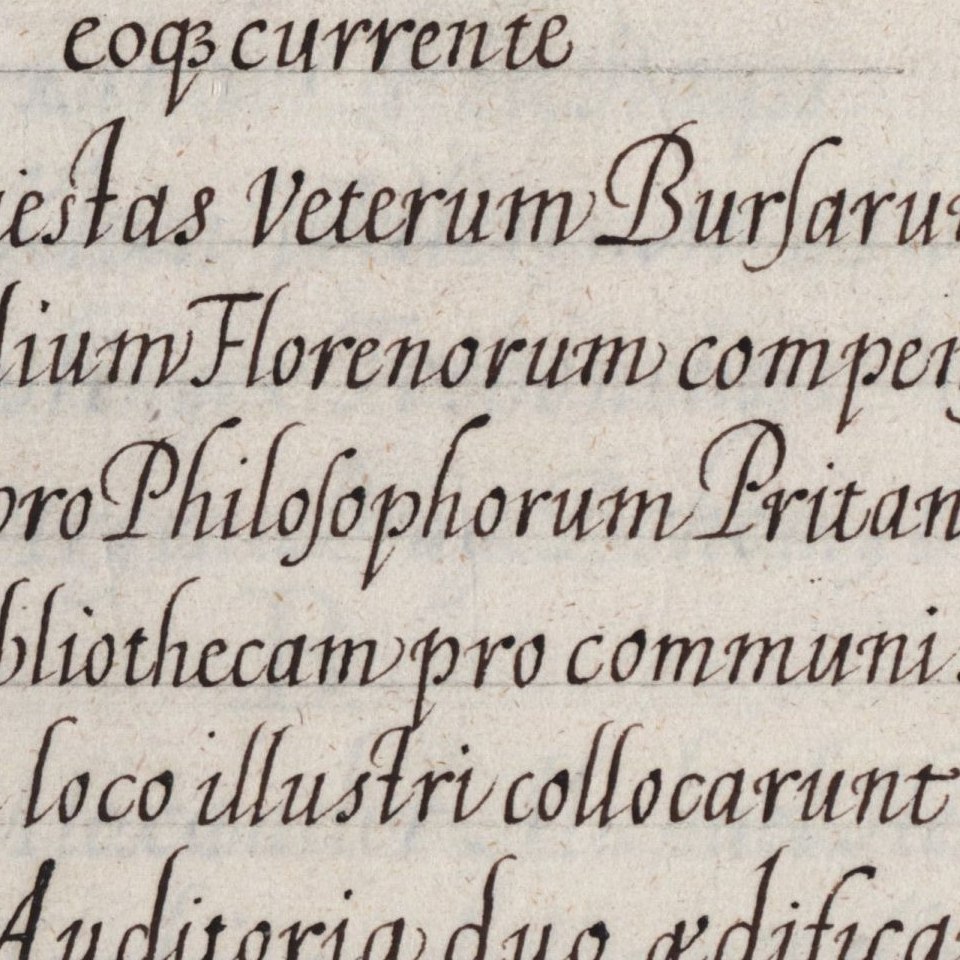 eoqꝫ currente
iestas Veterum Burſaru
lium Florenorum compen
pro Philoſophorum Pritan
bliothecam pro communi
loco illustri collocarunt
Auditoria duo ædifica